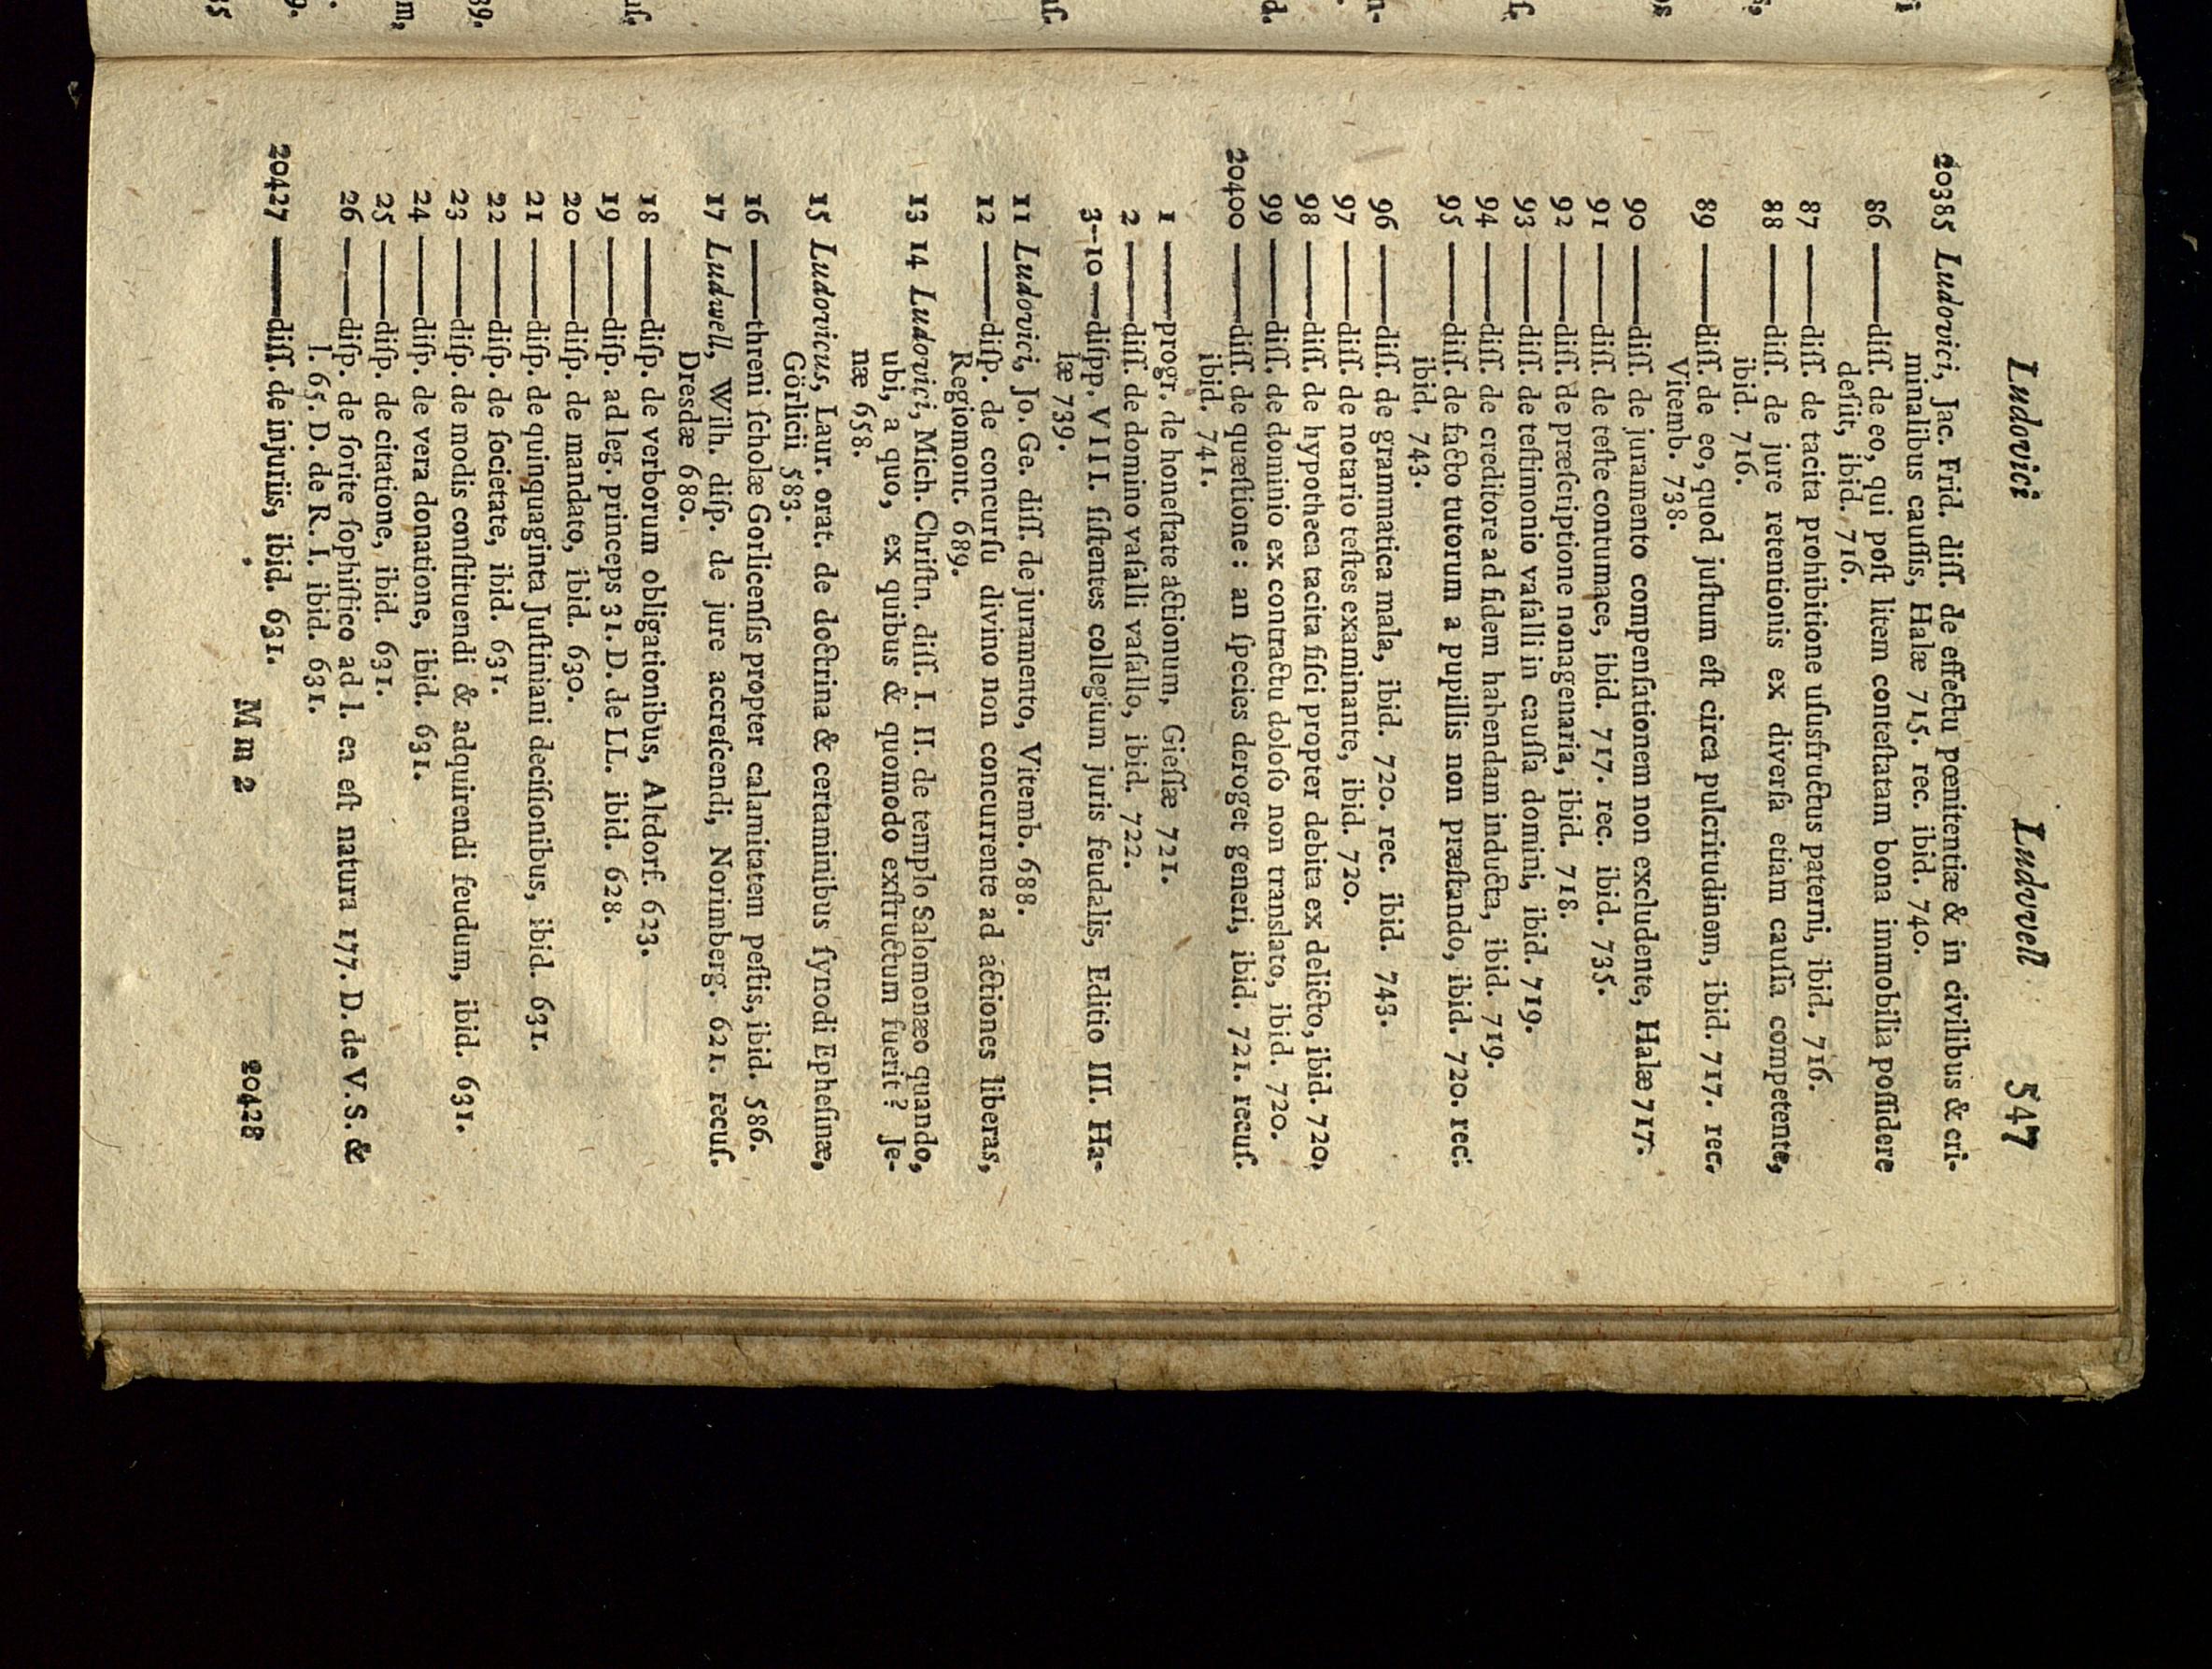 Ludovici Ludovvell 547
20385 Ludovici, Jac. Frid. diſſ. de effectu pœnitentiæ & in civilibus & cri-
minalibus cauſſis, Halæ 715. rec. ibid. 740.
86 ——diſſ. de eo, qui poſt litem conteſtatam bona immobilia poſſidere
deſiit, ibid. 716.
87 ——diſſ. de tacita prohibitione uſusfructus paterni, ibid. 716.
88 ——diſſ. de jure retentionis ex diverſa etiam cauſſa competente,
ibid. 716.
89 ——diſſ. de eo, quod juſtum eſt circa pulcritudinem, ibid. 717. rec.
Vitemb. 738.
90 ——diſſ. de juramento compenſationem non excludente, Halæ 717.
91 ——diſſ. de teſte contumace, ibid. 717. rec. ibid. 735.
92 ——diſſ. de præſcriptione nonagenaria, ibid. 718.
93 ——diſſ. de teſtimonio vaſalli in cauſſa domini, ibid. 719.
94 ——diſſ. de creditore ad fidem habendam inducta, ibid. 719.
95 ——diſſ. de facto tutorum a pupillis non præſtando, ibid. 720. rec.
ibid. 743.
96 ——diſſ. de grammatica mala, ibid. 720. rec. ibid. 743.
97 ——diſſ. de notario teſtes examinante, ibid. 720.
98 ——diſſ. de hypotheca tacita fiſci propter debita ex delicto, ibid. 720.
99 ——diſſ. de dominio ex contractu doloſo non translato, ibid. 720.
20400 ——diſſ. de quæſtione: an ſpecies deroget generi, ibid. 721. recuſ.
ibid. 741.
1 ——progr. de honeſtate actionum, Gieſſæ 721.
2 ——diſſ. de domino vaſalli vaſallo, ibid. 722.
3--10 —diſpp. VIII. ſiſtentes collegium juris feudalis, Editio III. Ha-
læ 739.
11 Ludovici, Jo. Ge. diſſ. de juramento, Vitemb. 688.
12 ——diſp. de concurſu divino non concurrente ad actiones liberas,
Regiomont. 689.
13 14 Ludovici, Mich. Chriſtn. diſſ. I. II. de templo Salomonæo quando,
ubi, a quo, ex quibus & quomodo exſtructum fuerit? Je-
næ 658.
15 Ludovicus, Laur. orat. de doctrina & certaminibus ſynodi Epheſinæ,
Görlicii 583.
16 ——threni ſcholæ Gorlicenſis propter calamitatem peſtis, ibid. 586.
17 Ludwell, Wilh. diſp. de jure accreſcendi, Norimberg. 621. recuſ.
Dresdæ 680.
18 ——diſp. de verborum obligationibus, Altdorf. 623.
19 ——diſp. ad leg. princeps 31. D. de LL. ibid. 628.
20 ——diſp. de mandato, ibid. 630.
21 ——diſp. de quinquaginta Juſtiniani deciſionibus, ibid. 631.
22 ——diſp. de ſocietate, ibid. 631.
23 ——diſp. de modis conſtituendi & adquirendi feudum, ibid. 631.
24 ——diſp. de vera donatione, ibid. 631.
25 ——diſp. de citatione, ibid. 631.
26 ——diſp. de ſorite ſophiſtico ad l. ea eſt natura 177. D. de V. S. &
l. 65. D. de R. I. ibid. 631.
20427 ——diſſ. de injuriis, ibid. 631.
M m 2 20428